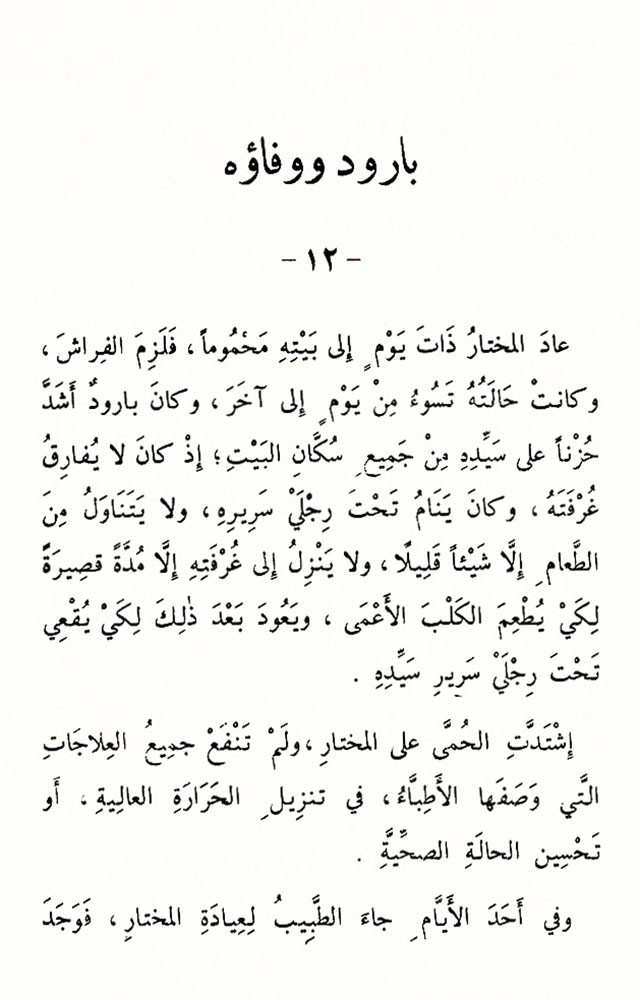 بارود ووفاؤه
- ١٢ -
عادَ المختارُ ذَاتَ يَوْمٍ إِلى بَيْتِهِ مَحْمُوماً ، فَلَزِمَ الفِراشَ ،
وكانتْ حَالَتُهُ تَسُوءُ مِنْ يَوْمٍ إِلى آخَرَ ، وكانَ بارودٌ أَشَدَّ
حُزْناً على سَيِّدِهِ مِنْ جَمِيعِ سُكَّانِ البَيْتِ ؛ إِذْ كانَ لا يُفارِقُ
غُرْفَتَهُ ، وكانَ يَنَامُ تَحْتَ رِجْلَيْ سَرِيرِهِ ، ولا يَتَنَاوَلُ مِنَ
الطَّعامِ إِلَّا شَيْئاً قَلِيلًا ، ولا يَنْزِلُ إِلى غُرْفَتِهِ إِلَّا مُدَّةً قصِيرَةً
لِكَيْ يُطْعِمَ الكَلْبَ الأَعْمَى ، ويَعُودَ بَعْدَ ذٰلِكَ لِكَيْ يُقْعِي
تَحْتَ رِجْلَيْ سَرِيرِ سَيِّدِهِ .
إِشْتَدَّتِ الحُمَّى على المختارِ ، ولَمْ تَنْفَعْ جمِيعُ العِلاجَاتِ
الَّتي وَصَفَها الأَطِبَّاءُ ، في تنزِيلِ الحَرَارَةِ العالِيةِ ، أَو
تَحْسِين الحالَةِ الصحِّيَّةِ .
وفي أَحَدَ الأَيَّامِ جاءَ الطَّبِيبُ لِعِيادَةِ المختارِ ، فَوَجَدَ